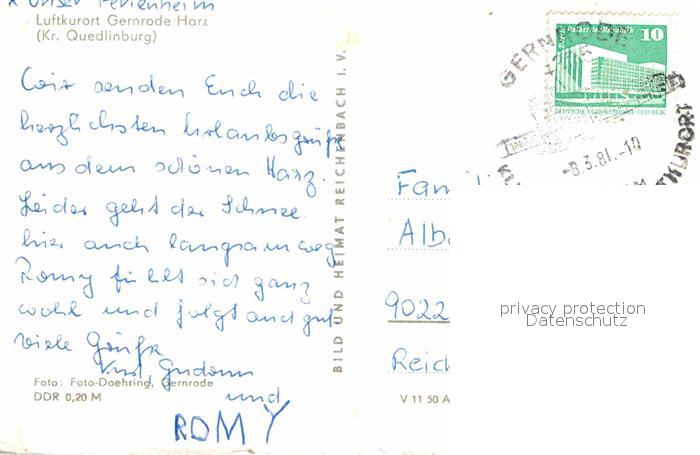 x Unser Ferienheim
Luftkurort Gernrode/Harz
(Kr. Quedlinburg)
Wir senden Euch die
herzlichsten Urlaubsgrüße
aus dem schönen Harz.
Leider geht der Schnee
hier auch langsam weg
Romy fühlt sich ganz
wohl und folgt auch gut
Viele Grüße
Gudrun
und
ROMY
Foto: Foto-Doehring, Gernrode
DDR 0,20 M
BILD UND HEIMAT REICHENBACH I. V.
V 11 50 A
GERNRODE
-8.3.81.-10
Palast der Republik
10
DEUTSCHE DEMOKRATISCHE REPUBLIK
Fami
Alb
9022
Reich
privacy protection
Datenschutz